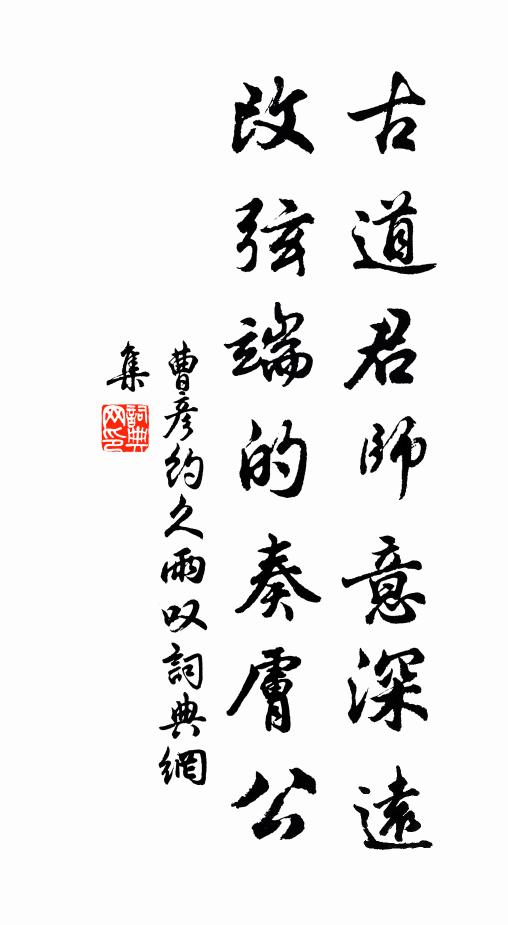 古道君師意深遠
改弦端的奏膚公
曹彥約久雨叹詞典網
集
詞典網印